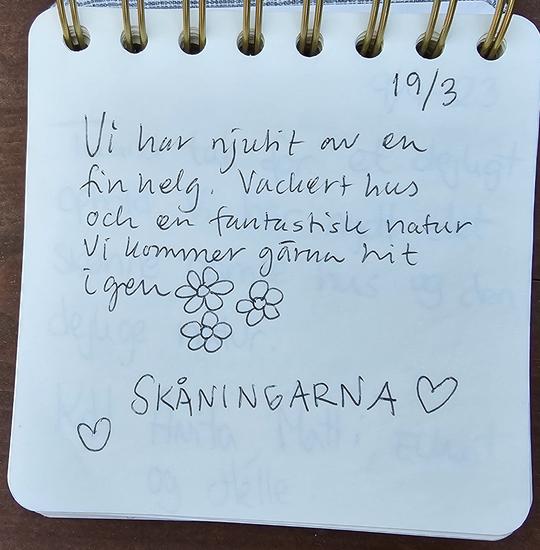 19/3
Vi har njutit av en
fin helg. Vackert hus
och en fantastisk natur
Vi kommer gärna hit
igen
SKÅNINGARNA